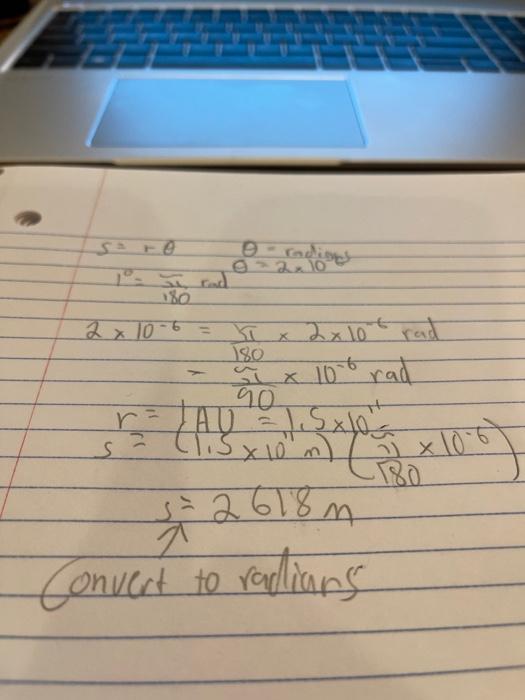 s = r θ θ - radians
θ = 2 × 10⁻⁶
1° = π/180 rad
2 × 10⁻⁶ = π/180 × 2 × 10⁻⁶ rad
= π/90 × 10⁻⁶ rad
r = 1 AU = 1.5 × 10¹¹
s = (1.5 × 10¹¹ m) (π/180 × 10⁻⁶)
s = 2618 m
Convert to radians